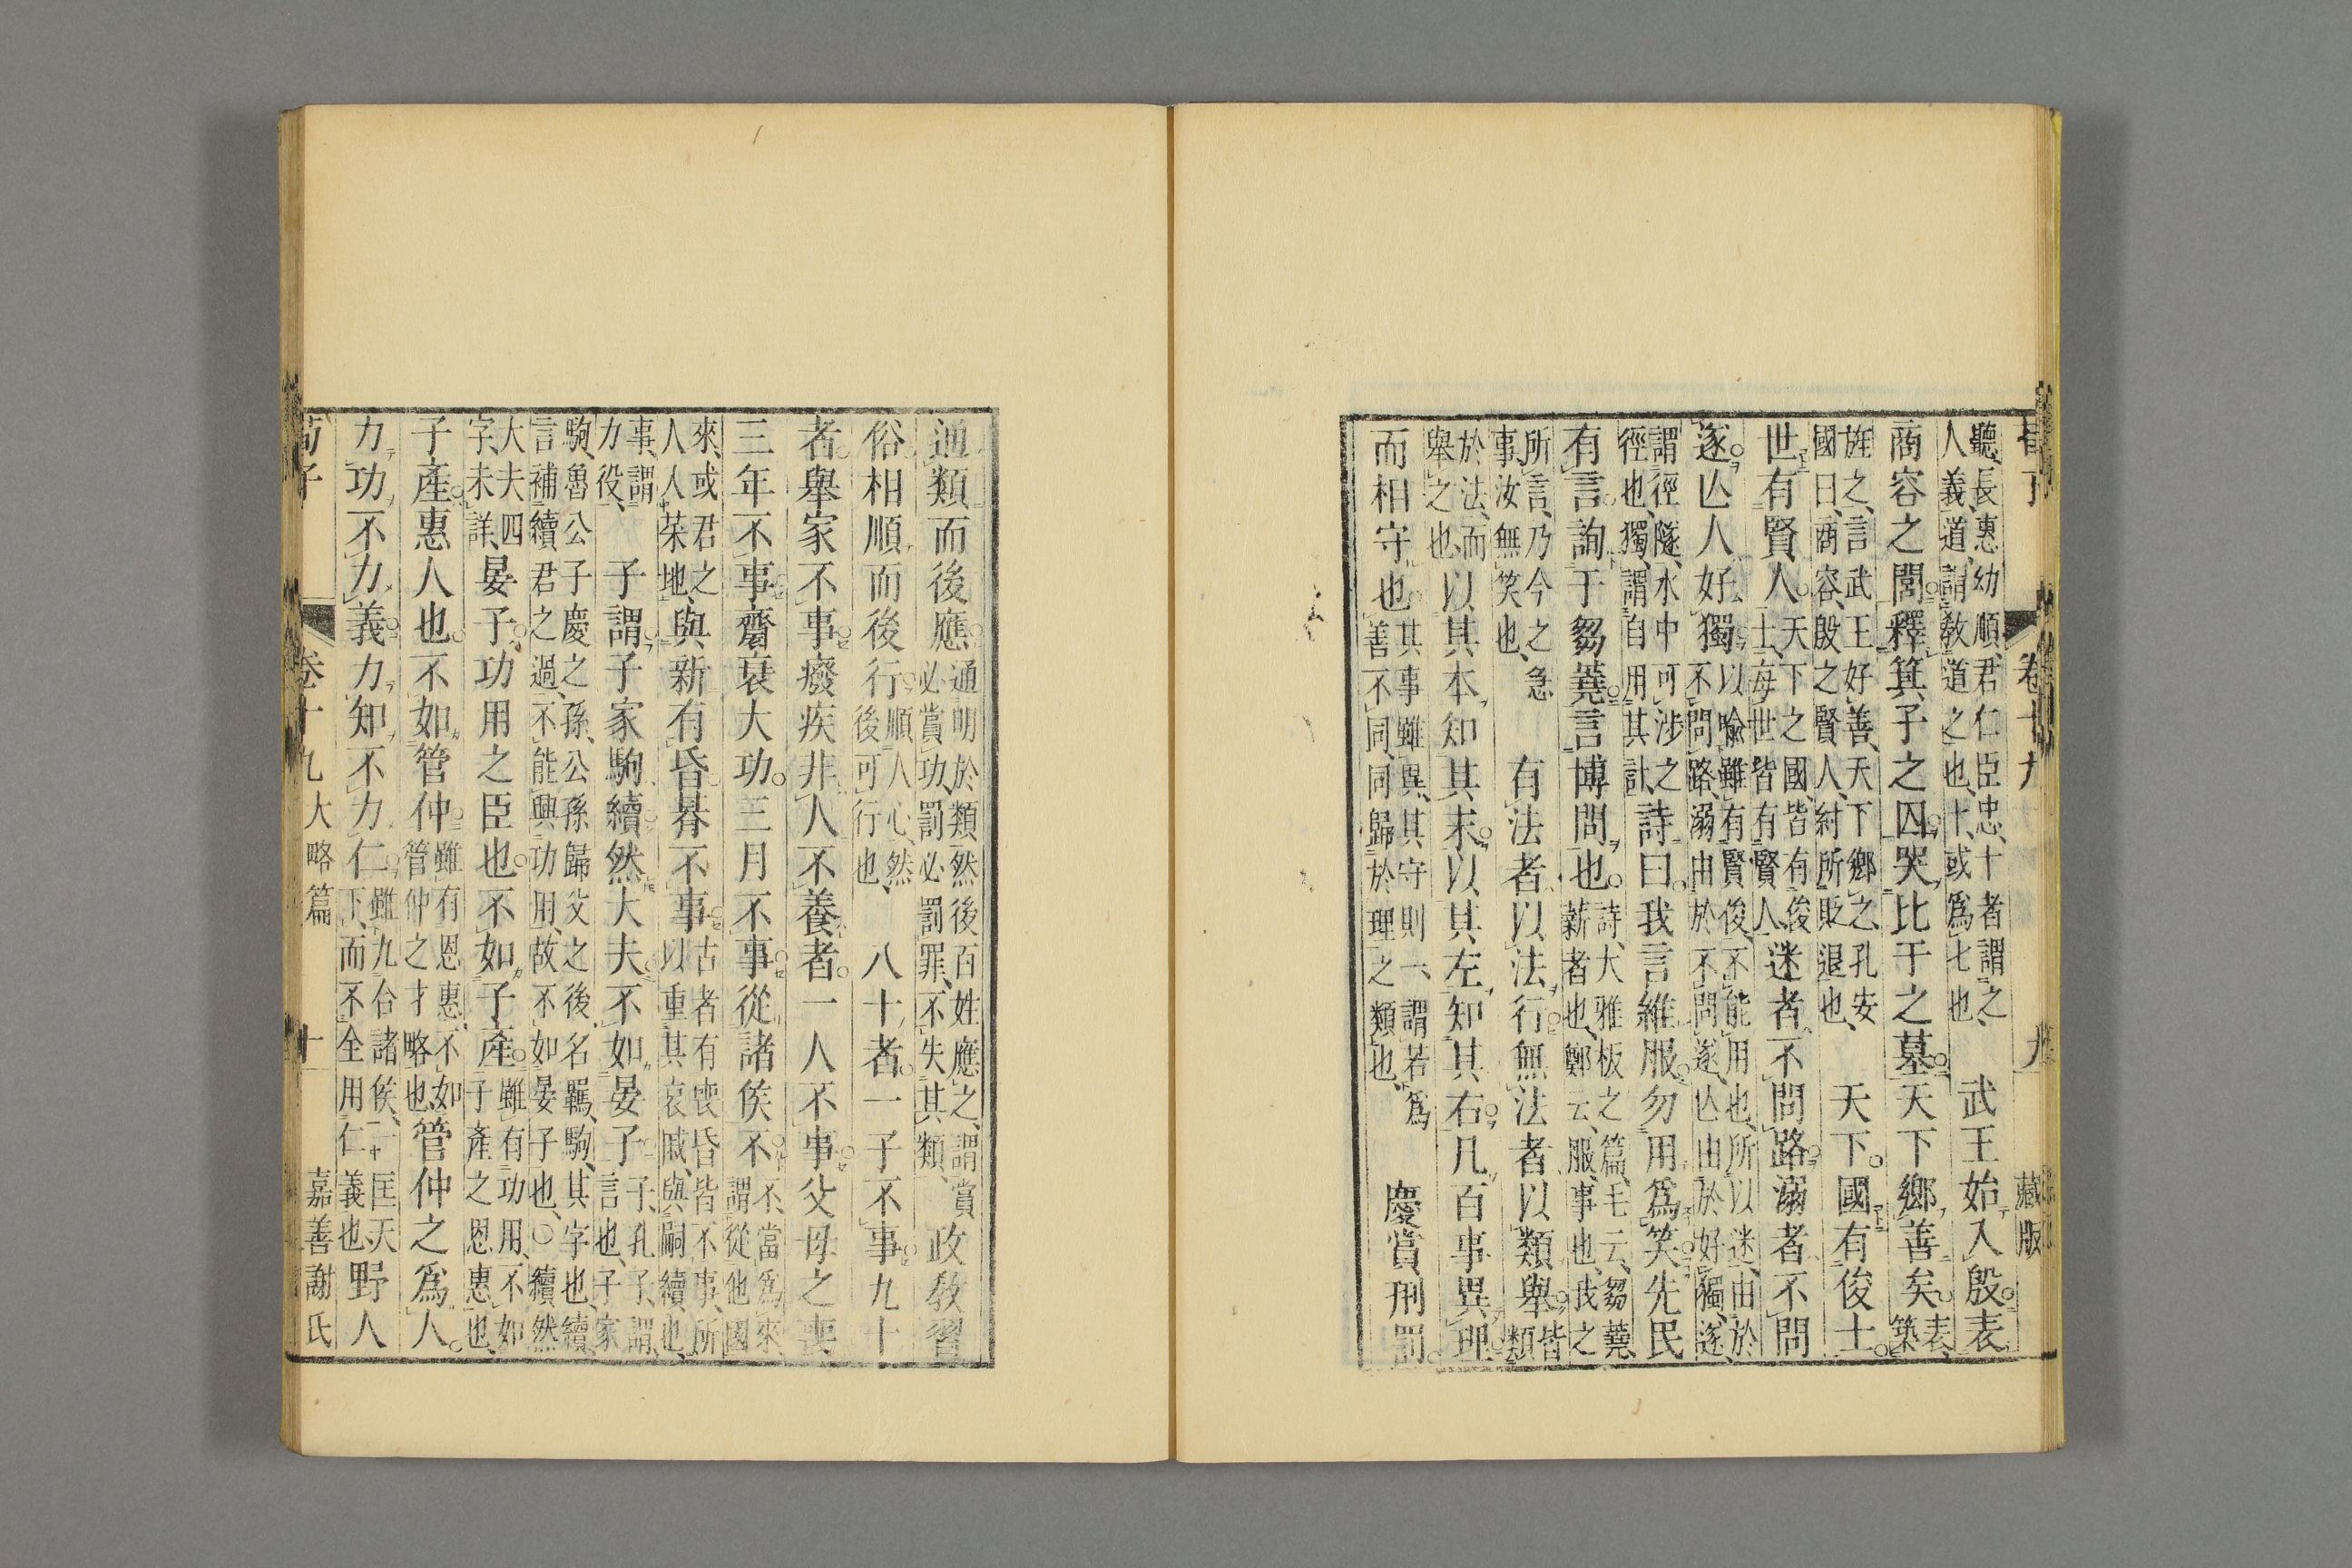 荀子 卷十九 九 藏版
聽、長惠、幼順、君仁臣忠、十者謂之
人義、道、謂敎道之也、十、或爲七也、武王始入殷表
商容之閭釋箕子之囚哭比干之墓天下鄕善矣表、築
旌之、言武王好善、天下鄕之、孔安
國曰、商容、殷之賢人、紂所貶退也、天下國有俊士
世有賢人天下之國、皆有俊
士、每世皆有賢人、迷者不問路溺者不問
遂亾人好獨以喩雖有賢俊、不能用也、所以迷、由於
不問路、溺由於不問遂、亾由於好獨、遂、
謂徑隧、水中可涉之
徑也、獨、謂自用其計、詩曰我言維服勿用爲笑先民
有言詢于芻蕘言博問也詩、大雅板之篇、毛云、芻蕘、
薪者也、鄭云、服、事也、我之
所言、乃今之急
事、汝無笑也、有法者以法行無法者以類舉皆
類
於法、而
舉之也、以其本知其末以其左知其右凡百事異理
而相守也其事雖異、其守則一、謂若爲
善不同、同歸於理之類也、慶賞刑罰
通類而後應通明於類然後百姓應之、謂賞
必賞功、罰必罰罪、不失其類、政敎習
俗相順而後行順人心、然
後可行也、八十者一子不事九十
者舉家不事癈疾非人不養者一人不事父母之喪
三年不事齊衰大功三月不事從諸侯不不當爲來、
謂從他國
來、或君之
人入采地、與新有昏朞不事古者有喪昏皆不事、所
以重其哀戚與嗣續也、
事、謂
力役、子謂子家駒續然大夫不如晏子子、孔子、謂、
言也、子家
駒、魯公子慶之孫、公孫歸父之後、名羈、駒、其字也、續、
言補續君之過、不能興功用、故不如晏子也、○續然
大夫四
字、未詳、晏子功用之臣也不如子產雖有功用、不如
子產之恩惠也、
子產惠人也不如管仲雖有恩惠、不如
管仲之才略也、管仲之爲人
力功不力義力知不力仁雖九合諸侯、一匡天
下、而不全用仁義也、野人
荀子 卷十九 大略篇 十 嘉善謝氏